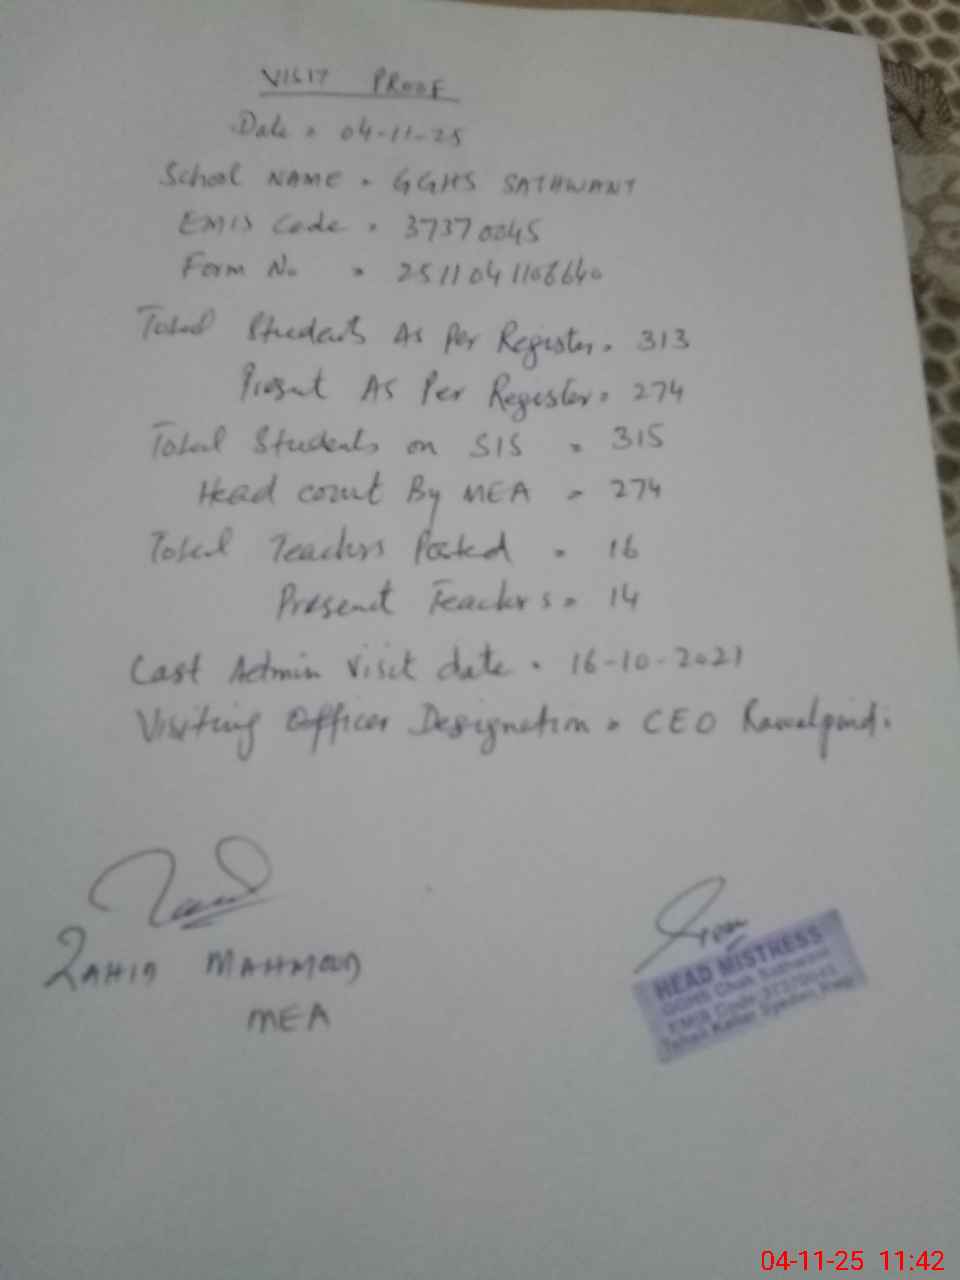 VISIT PROOF
Date = 04-11-25
School NAME = GGHS SATHWANT
EMIS Code = 37370045
Form No = 2511041106640
Total Students As Per Register = 313
Present As Per Register = 274
Total Students on SIS = 315
Head count By MEA = 274
Total Teachers Posted = 16
Present Teachers = 14
Last Admin Visit date = 16-10-2021
Visiting Officer Designation = CEO Rawalpindi
ZAHID MAHMOOD
MEA
HEAD MISTRESS
GGHS Chak Sathwani
EMIS Code 37370045
Tehsil Kallar Syedan
04-11-25 11:42